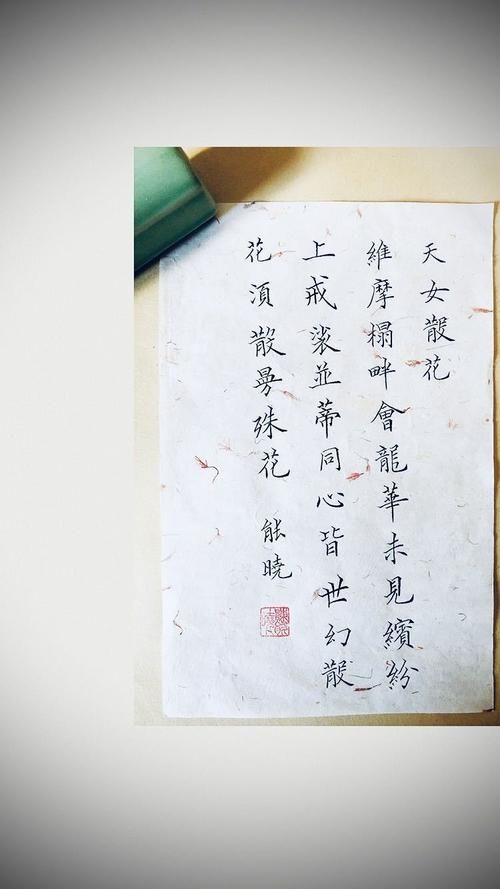 天女散花
維摩榻畔會龍華未見繽紛
上戒裟並蒂同心皆世幻散
花湏散曼殊花
能曉